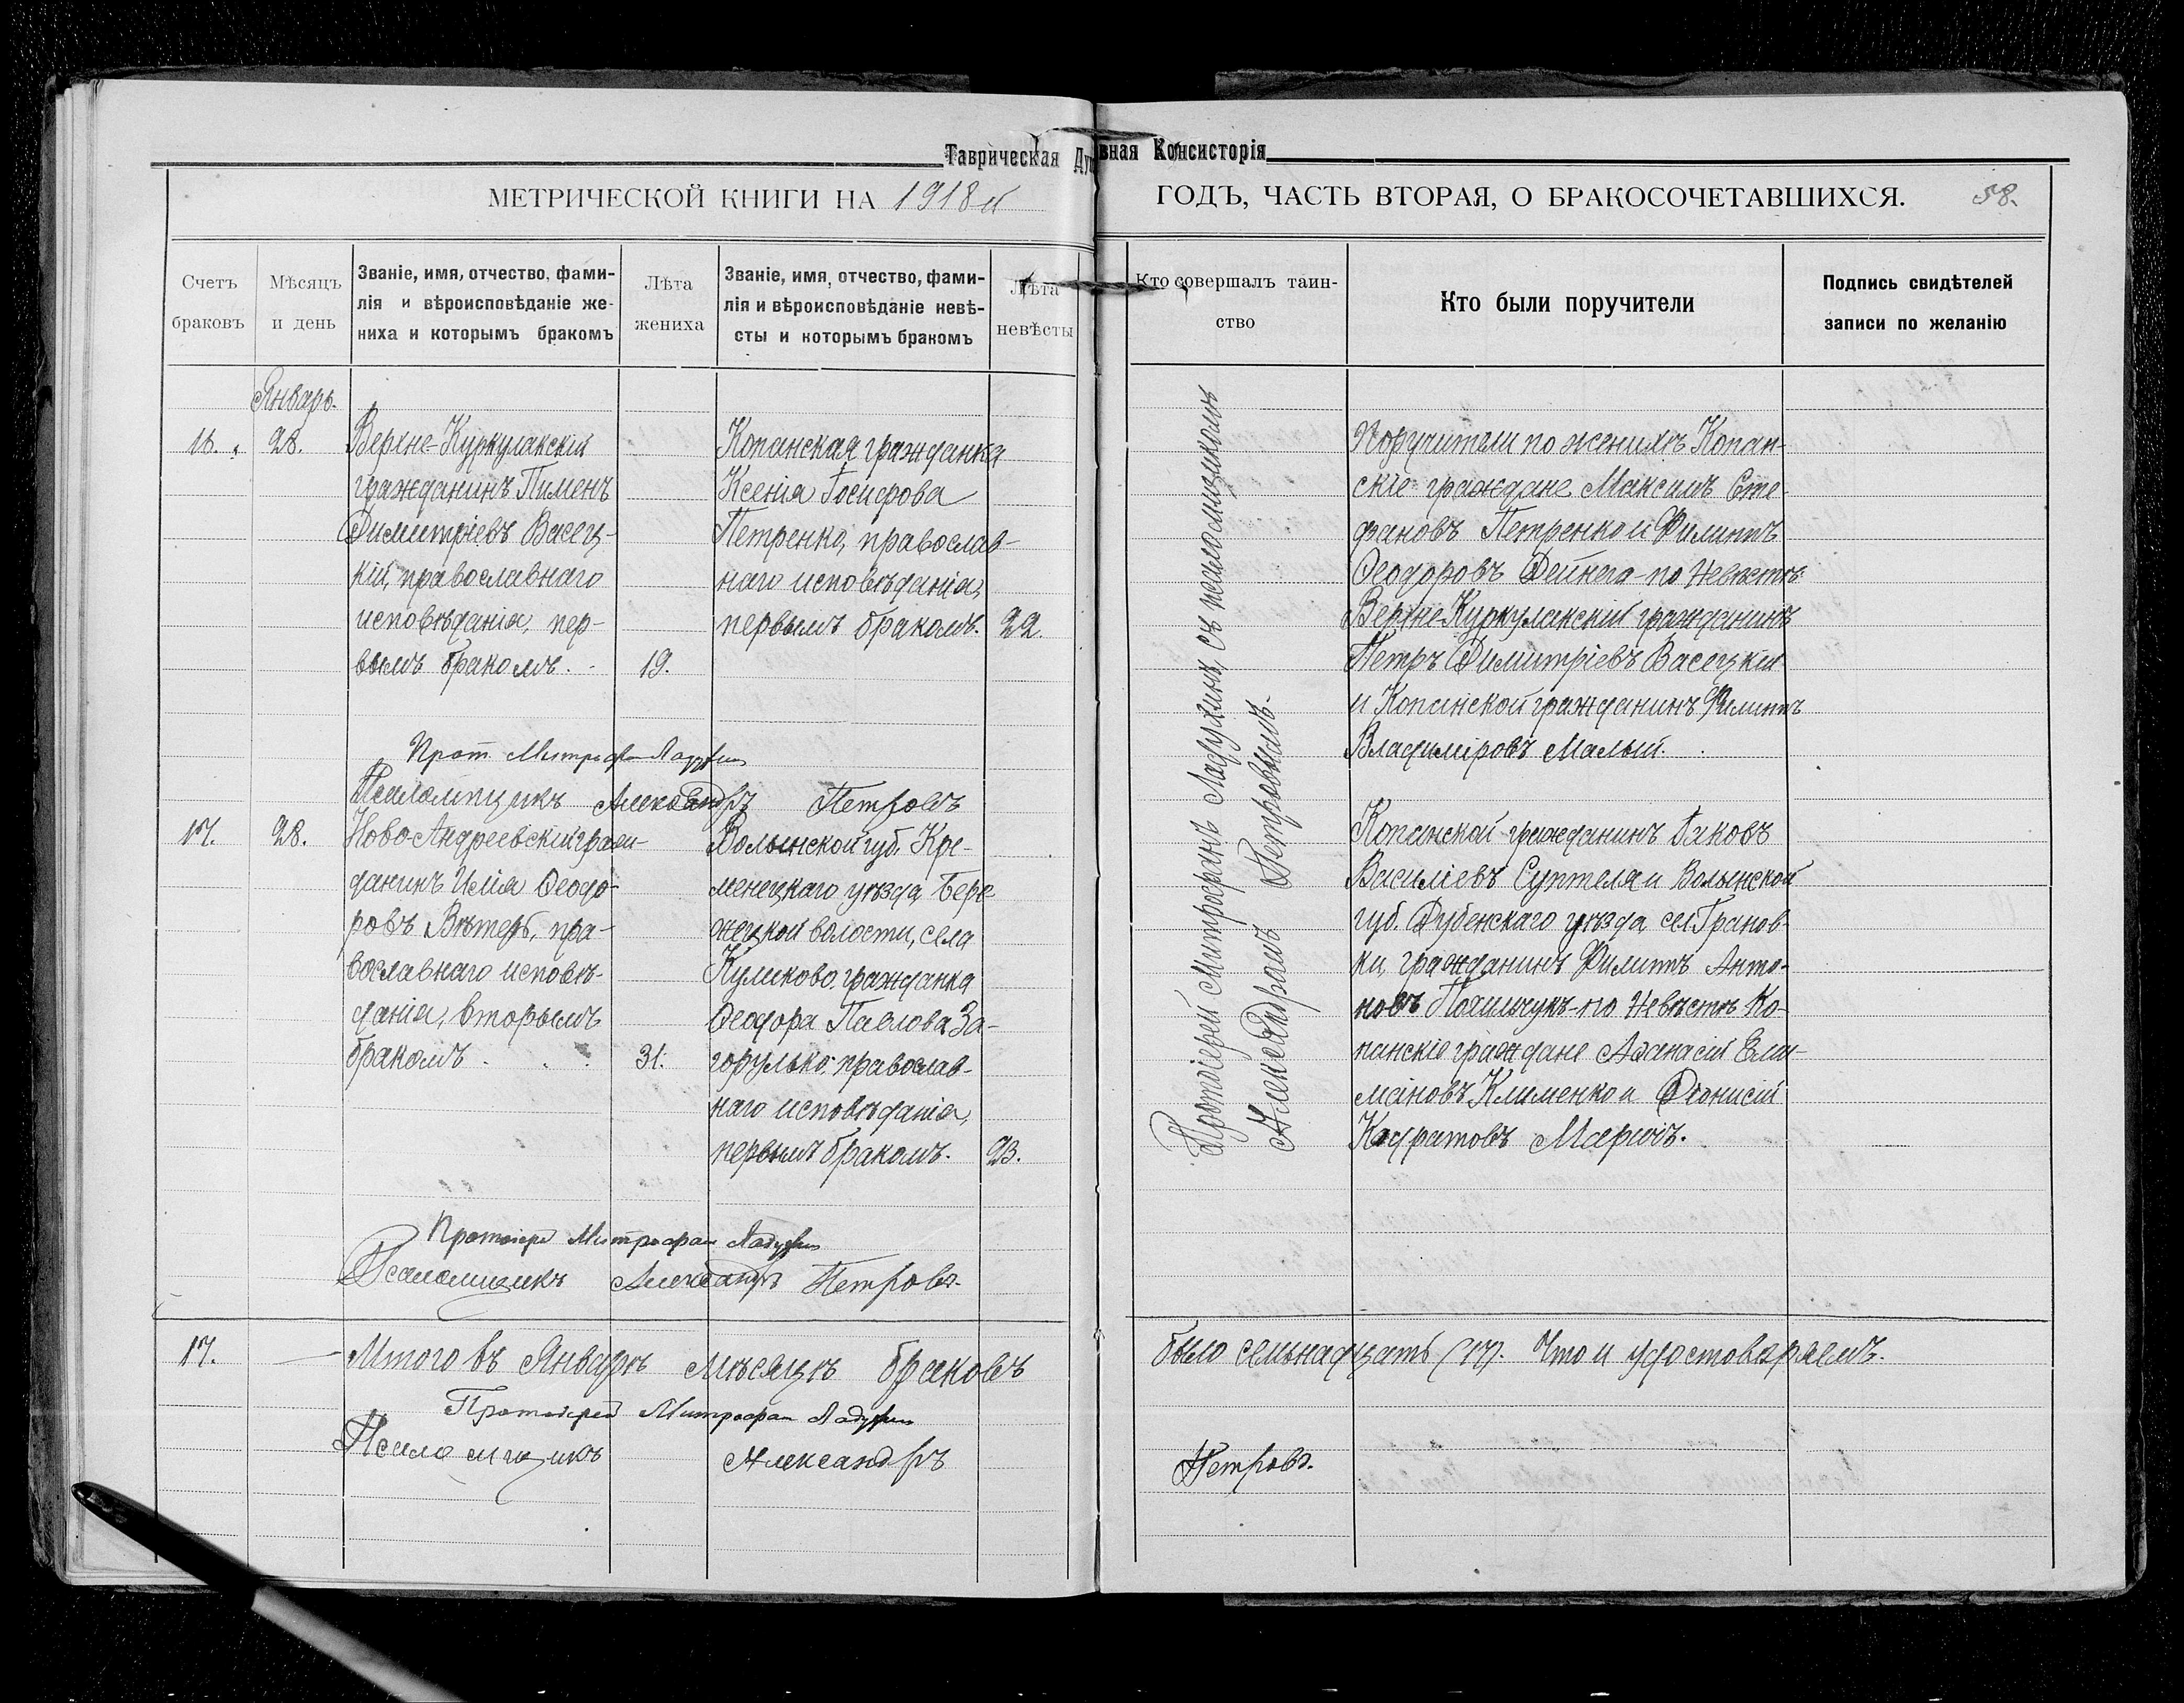 Таврическая Духовная Консисторія
МЕТРИЧЕСКОЙ КНИГИ НА 1918й ГОДЪ, ЧАСТЬ ВТОРАЯ, О БРАКОСОЧЕТАВШИХСЯ. 58.
Счетъ
браковъ
Мѣсяцъ
и день
Званіе, имя, отчество, фами-
лія и вѣроисповѣданіе же-
ниха и которымъ бракомъ
Лѣта
жениха
Званіе, имя, отчество, фами-
лія и вѣроисповѣданіе невѣ-
сты и которымъ бракомъ
Лѣта
невѣсты
Кто совершалъ таин-
ство
Кто были поручители
Подпись свидѣтелей
записи по желанію
Январь.
16.
28.
Верхне-Куркулакскій
гражданинъ Пименъ
Димитріевъ Васец-
кій, православнаго
исповѣданія, пер-
вымъ бракомъ.
19.
Копанская гражданка
Ксенія Іосифова
Петренко, православ-
наго исповѣданія,
первымъ бракомъ.
22
Протоіерей Митрофанъ Ладухинъ, съ псаломщикомъ
Александромъ Петровымъ.
Поручители по женихѣ Копан-
скіе граждане Максимъ Сте-
фановъ Петренко и Филиппъ
Ѳеодоровъ Дейнега - по невѣстѣ
Верхне-Куркулакскій гражданинъ
Петръ Димитріевъ Васецкій
и Копанской гражданинъ Филиппъ
Владиміровъ Малый.
Прот. Митрофан Ладухин
Псаломщикъ Александръ Петровъ
17.
28.
Ново-Андреевскій граж-
данинъ Илія Ѳеодо-
ровъ Вѣтеръ, пра-
вославнаго исповѣ-
данія, вторымъ
бракомъ
31.
Волынской губ. Кре-
менецкаго уѣзда Бере-
жецкой волости, села
Куликово гражданка
Ѳеодора Павлова За-
горулько, православ-
наго исповѣданія,
первымъ бракомъ.
23.
Копанской гражданинъ Іаковъ
Василіевъ Суптеля и Волынской
губ. Дубенскаго уѣзда сел. Гранов-
ки, гражданинъ Филиппъ Анто-
новъ Похильчукъ - по невѣстѣ Ко-
панскіе граждане Аѳанасій Ели-
міановъ Клименко и Діонисій
Кодратовъ
Протоіерей Митрофан Ладухин
Псаломщикъ Александръ Петровъ.
17.
Итого въ Январѣ мѣсяцѣ браковъ было семьнадцать (17). Что и удостоверяемъ.
Протоіерей Митрофан Ладухин
Псаломщикъ Александръ Петровъ.